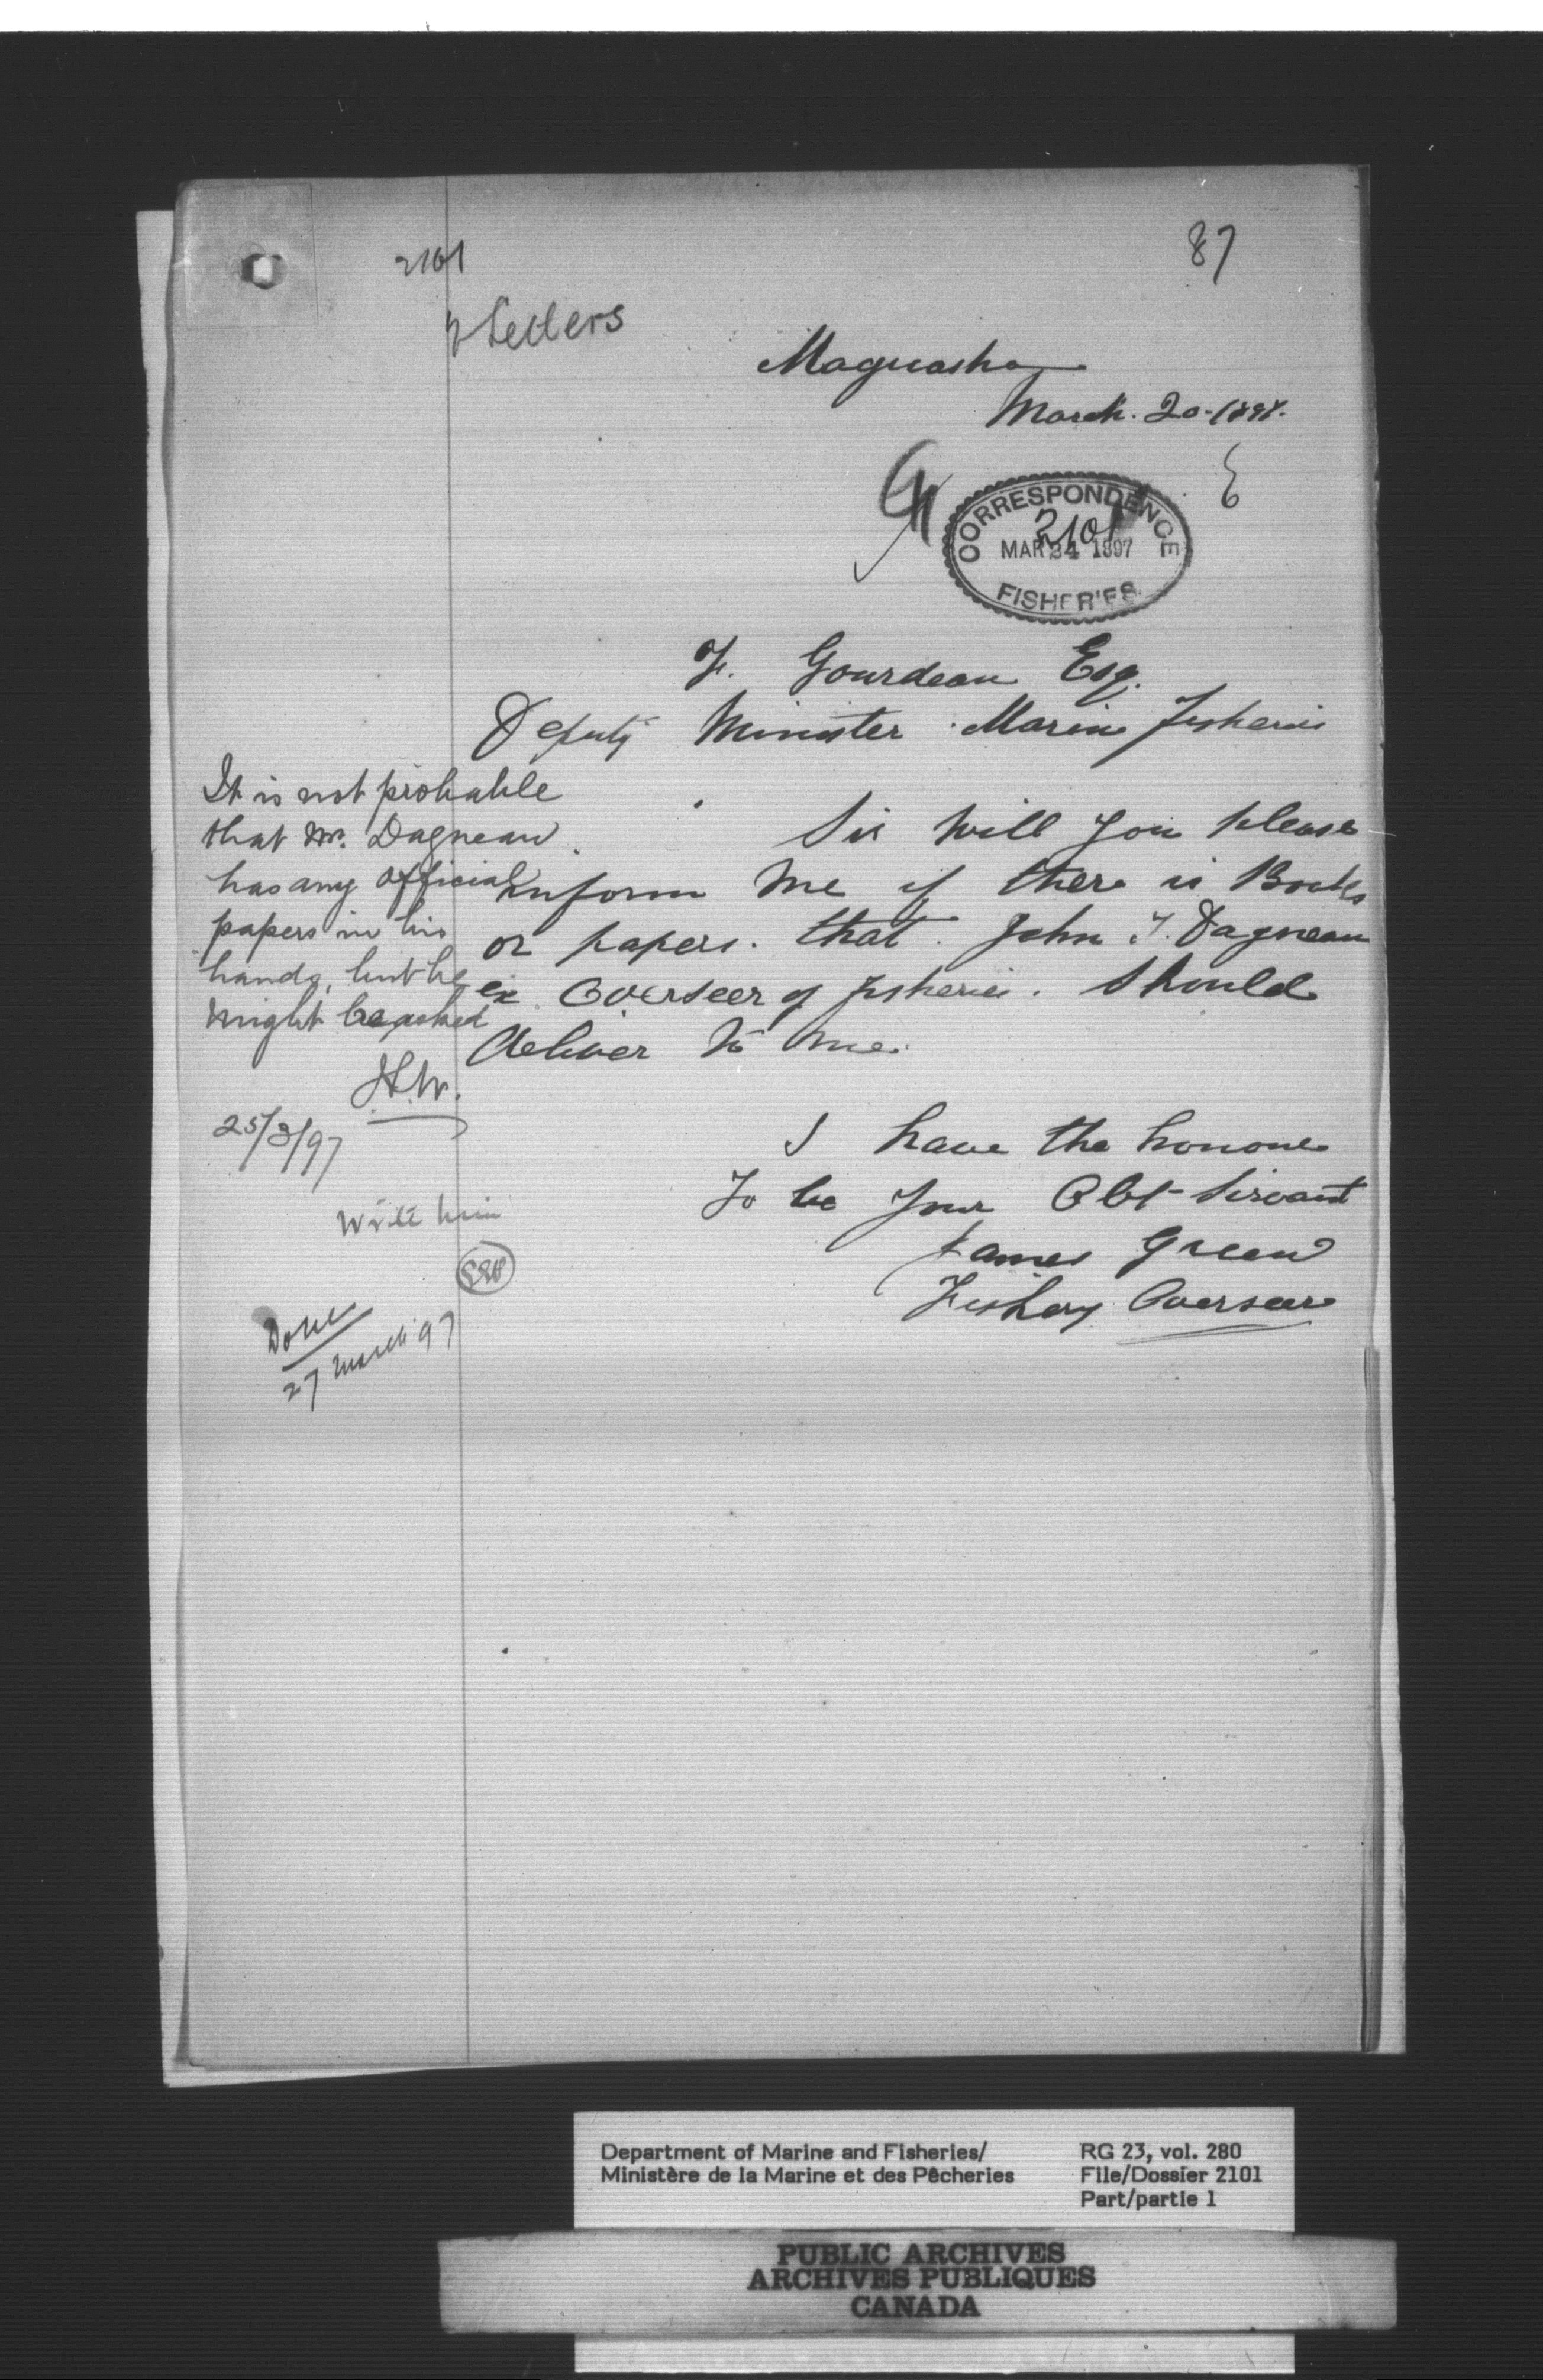 2101
87
2 Letters
Maguasha
March. 20-1897.
CORRESPONDENCE
2101
MAR 24 1897
FISHERIES
F. Gourdeau Esq.
Deputy Minister Marine Fisheries
Sir Will you please
inform me if there is Books
or papers. that. John F. Dagneau
ex Overseer of fisheries. Should
deliver to me.
I have the honour
To be your Obt Servant
James Green
Fishery Overseer
It is not probable
that Mr. Dagneau
has any official
papers in his
hands, but he
might be asked
25/3/97
Write him
Done
27 March 97
Department of Marine and Fisheries/
Ministère de la Marine et des Pêcheries
RG 23, vol. 280
File/Dossier 2101
Part/partie 1
PUBLIC ARCHIVES
ARCHIVES PUBLIQUES
CANADA